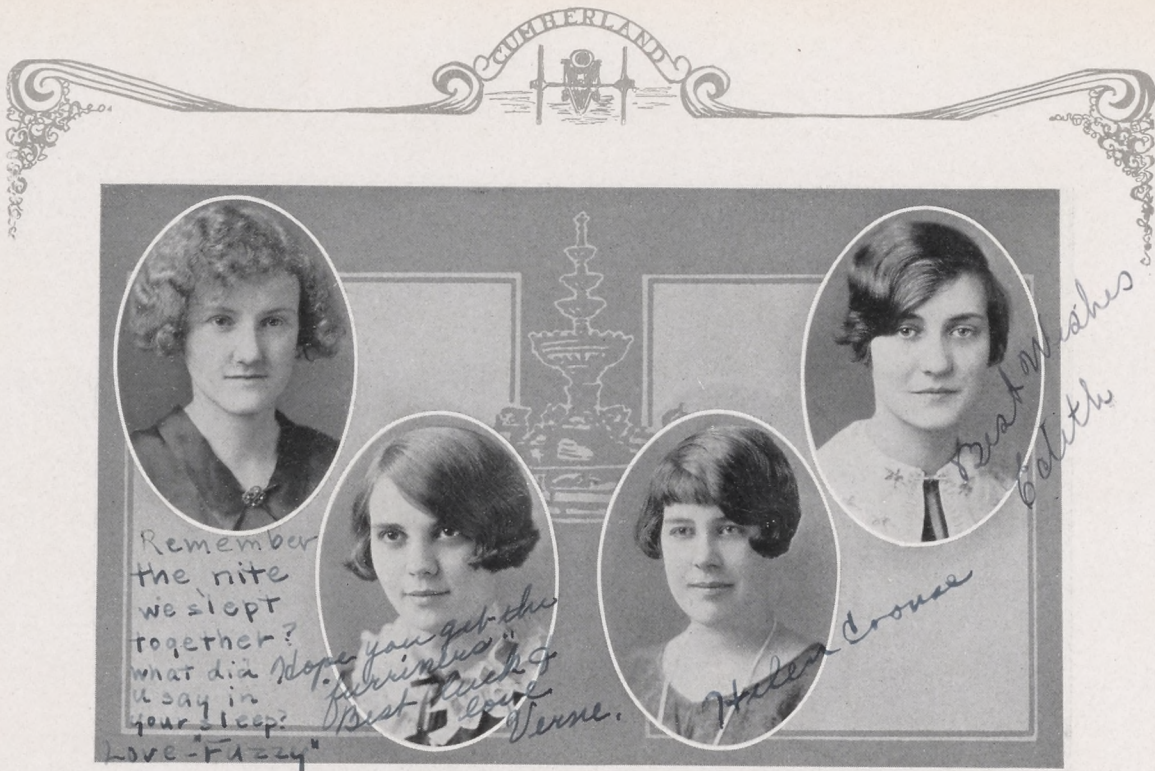 CUMBERLAND
Remember
the nite
we slept
together?
What did
u say in
your sleep?
Love - "Fuzzy"
Hope you get the
"furriners"
Best luck &
love
Verne.
Helen Coonse
Best Wishes
Edith